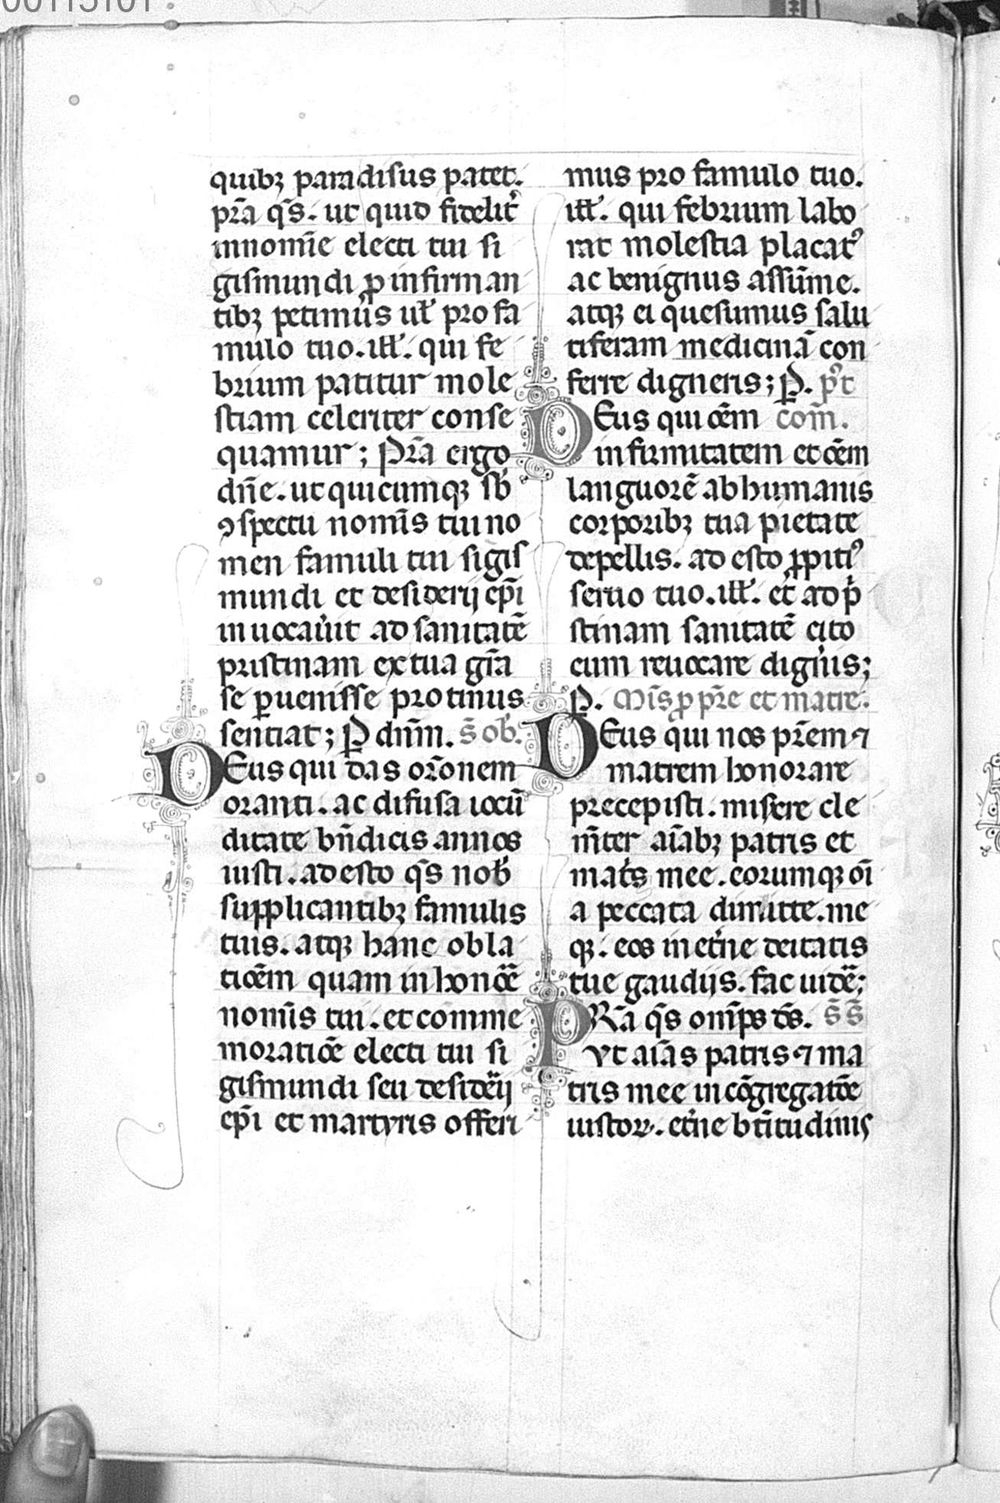 quibꝫ paradisus patet.
pr̄a qs̄. ut quid fidelit᷑
innom̄ie electi tui si
gismundi ꝓ infirman
tibꝫ petimus ut̄ pro fa
mulo tuo.ill̄. qui fe
brium patitur mole
stiam celeriter conse
quamur; Pr̄a ergo
dn̄e. ut quicumqꝫ sb̄
ꝯspectu nom̄is tui no
men famuli tui sigis
mundi et desiderij ep̄i
inuocau̾it ad sanitatē
pristinam ex tua gr̄a
se ꝑuenisse protinus
sentiat; P dnm̄. s̄ ob̄.
DEus qui das or̄onem
oranti. ac difusa iocū
ditate bn̄dicis annos
iusti. adesto qs̄ nob̄
supplicantibꝫ famulis
tuis. atqꝫ hanc obla
tiōem quam in honōē
nom̄is tui. et comme
moratiōe electi tui si
gismundi seu desiderij
ep̄i et martyris offeri
mus pro famulo tuo.
ill̄. qui febrium labo
rat molestia placat᷒
ac benignus assūme.
atqꝫ ei quesumus salu
tiferam medicinā con
ferre digneris; P. p᷒t
DEus qui ōēm com̄.
infirmitatem et ōēm
languorē ab humanis
corporibꝫ tua pietate
depellis. ad esto ꝓpiti᷒
seruo tuo.ill̄. et ad p̾
stinam sanitatē cito
cum reuocare dign̾is;
P. Mis̄ ꝓ pr̄e et matre.
DEus qui nos pr̄em ⁊
matrem honorare
precepisti. misere cle
m̄ter aīabꝫ patris et
mat̾s mee. eorumqꝫ oī
a peccata dimitte. me
qꝫ. eos in et̾ne deitatis
tue gaudijs. fac uidē;
PRa qs̄ omīps ds̄. s̄s̄
vt aīas patris ⁊ ma
tris mee in cōgregatōe
iustoꝝ. et̾ne bt̄itudinis